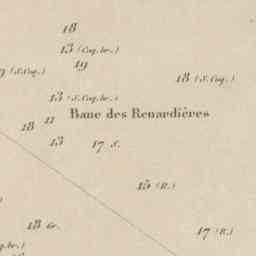 18
13 (Coq. br.)
19
9 (S. Coq.)
18 (S. Coq.)
13 (S. Coq. br.)
11
Banc des Renardières
18
13
17 S.
15 (R.)
18 Gr.
17 (R.)
18